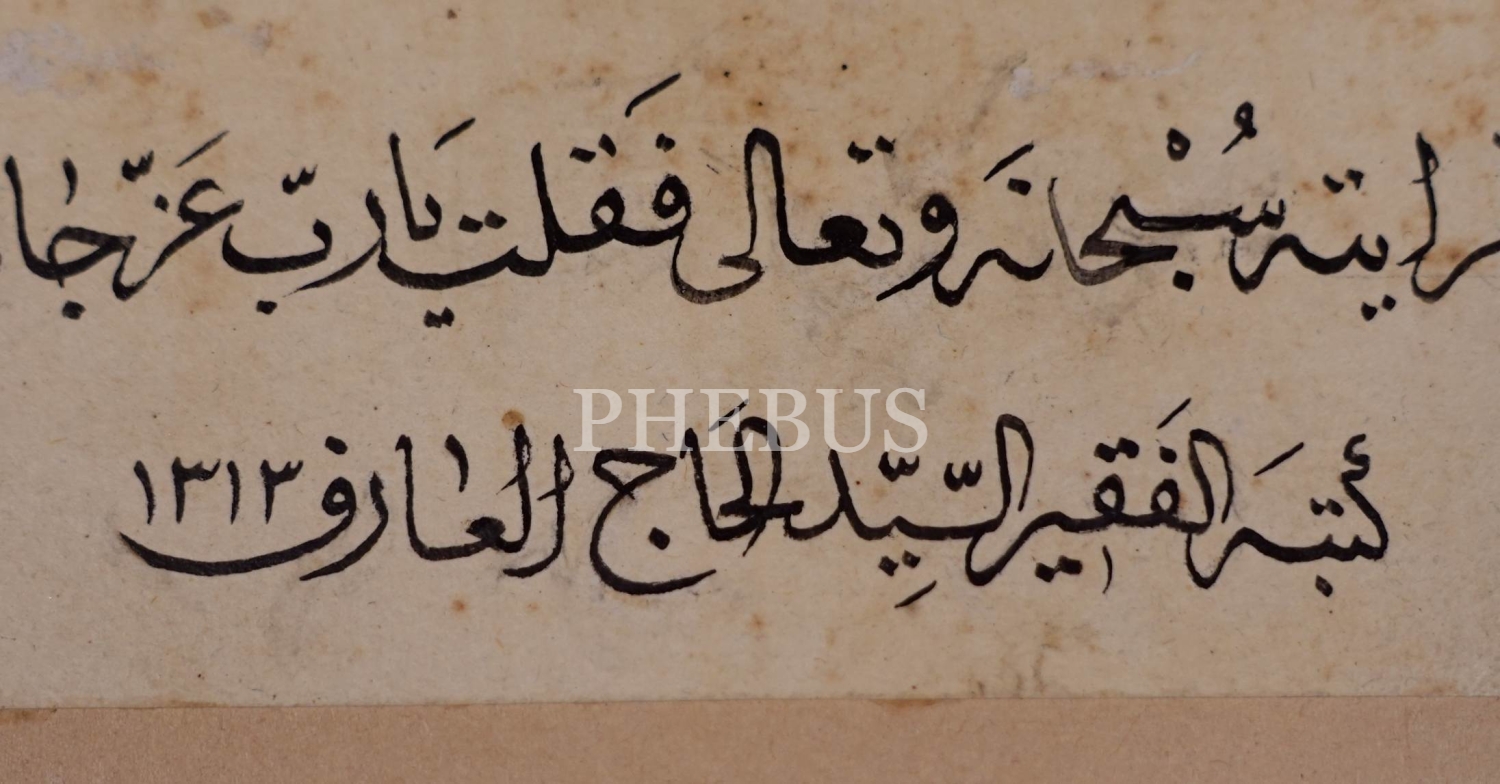 رايته سُبْحانَه وتعالى فَقلت يَارب عَزّ جا
PHEBUS
كتبَه الفَقير السَّيِّد الحَاج العارف ١٣١٣